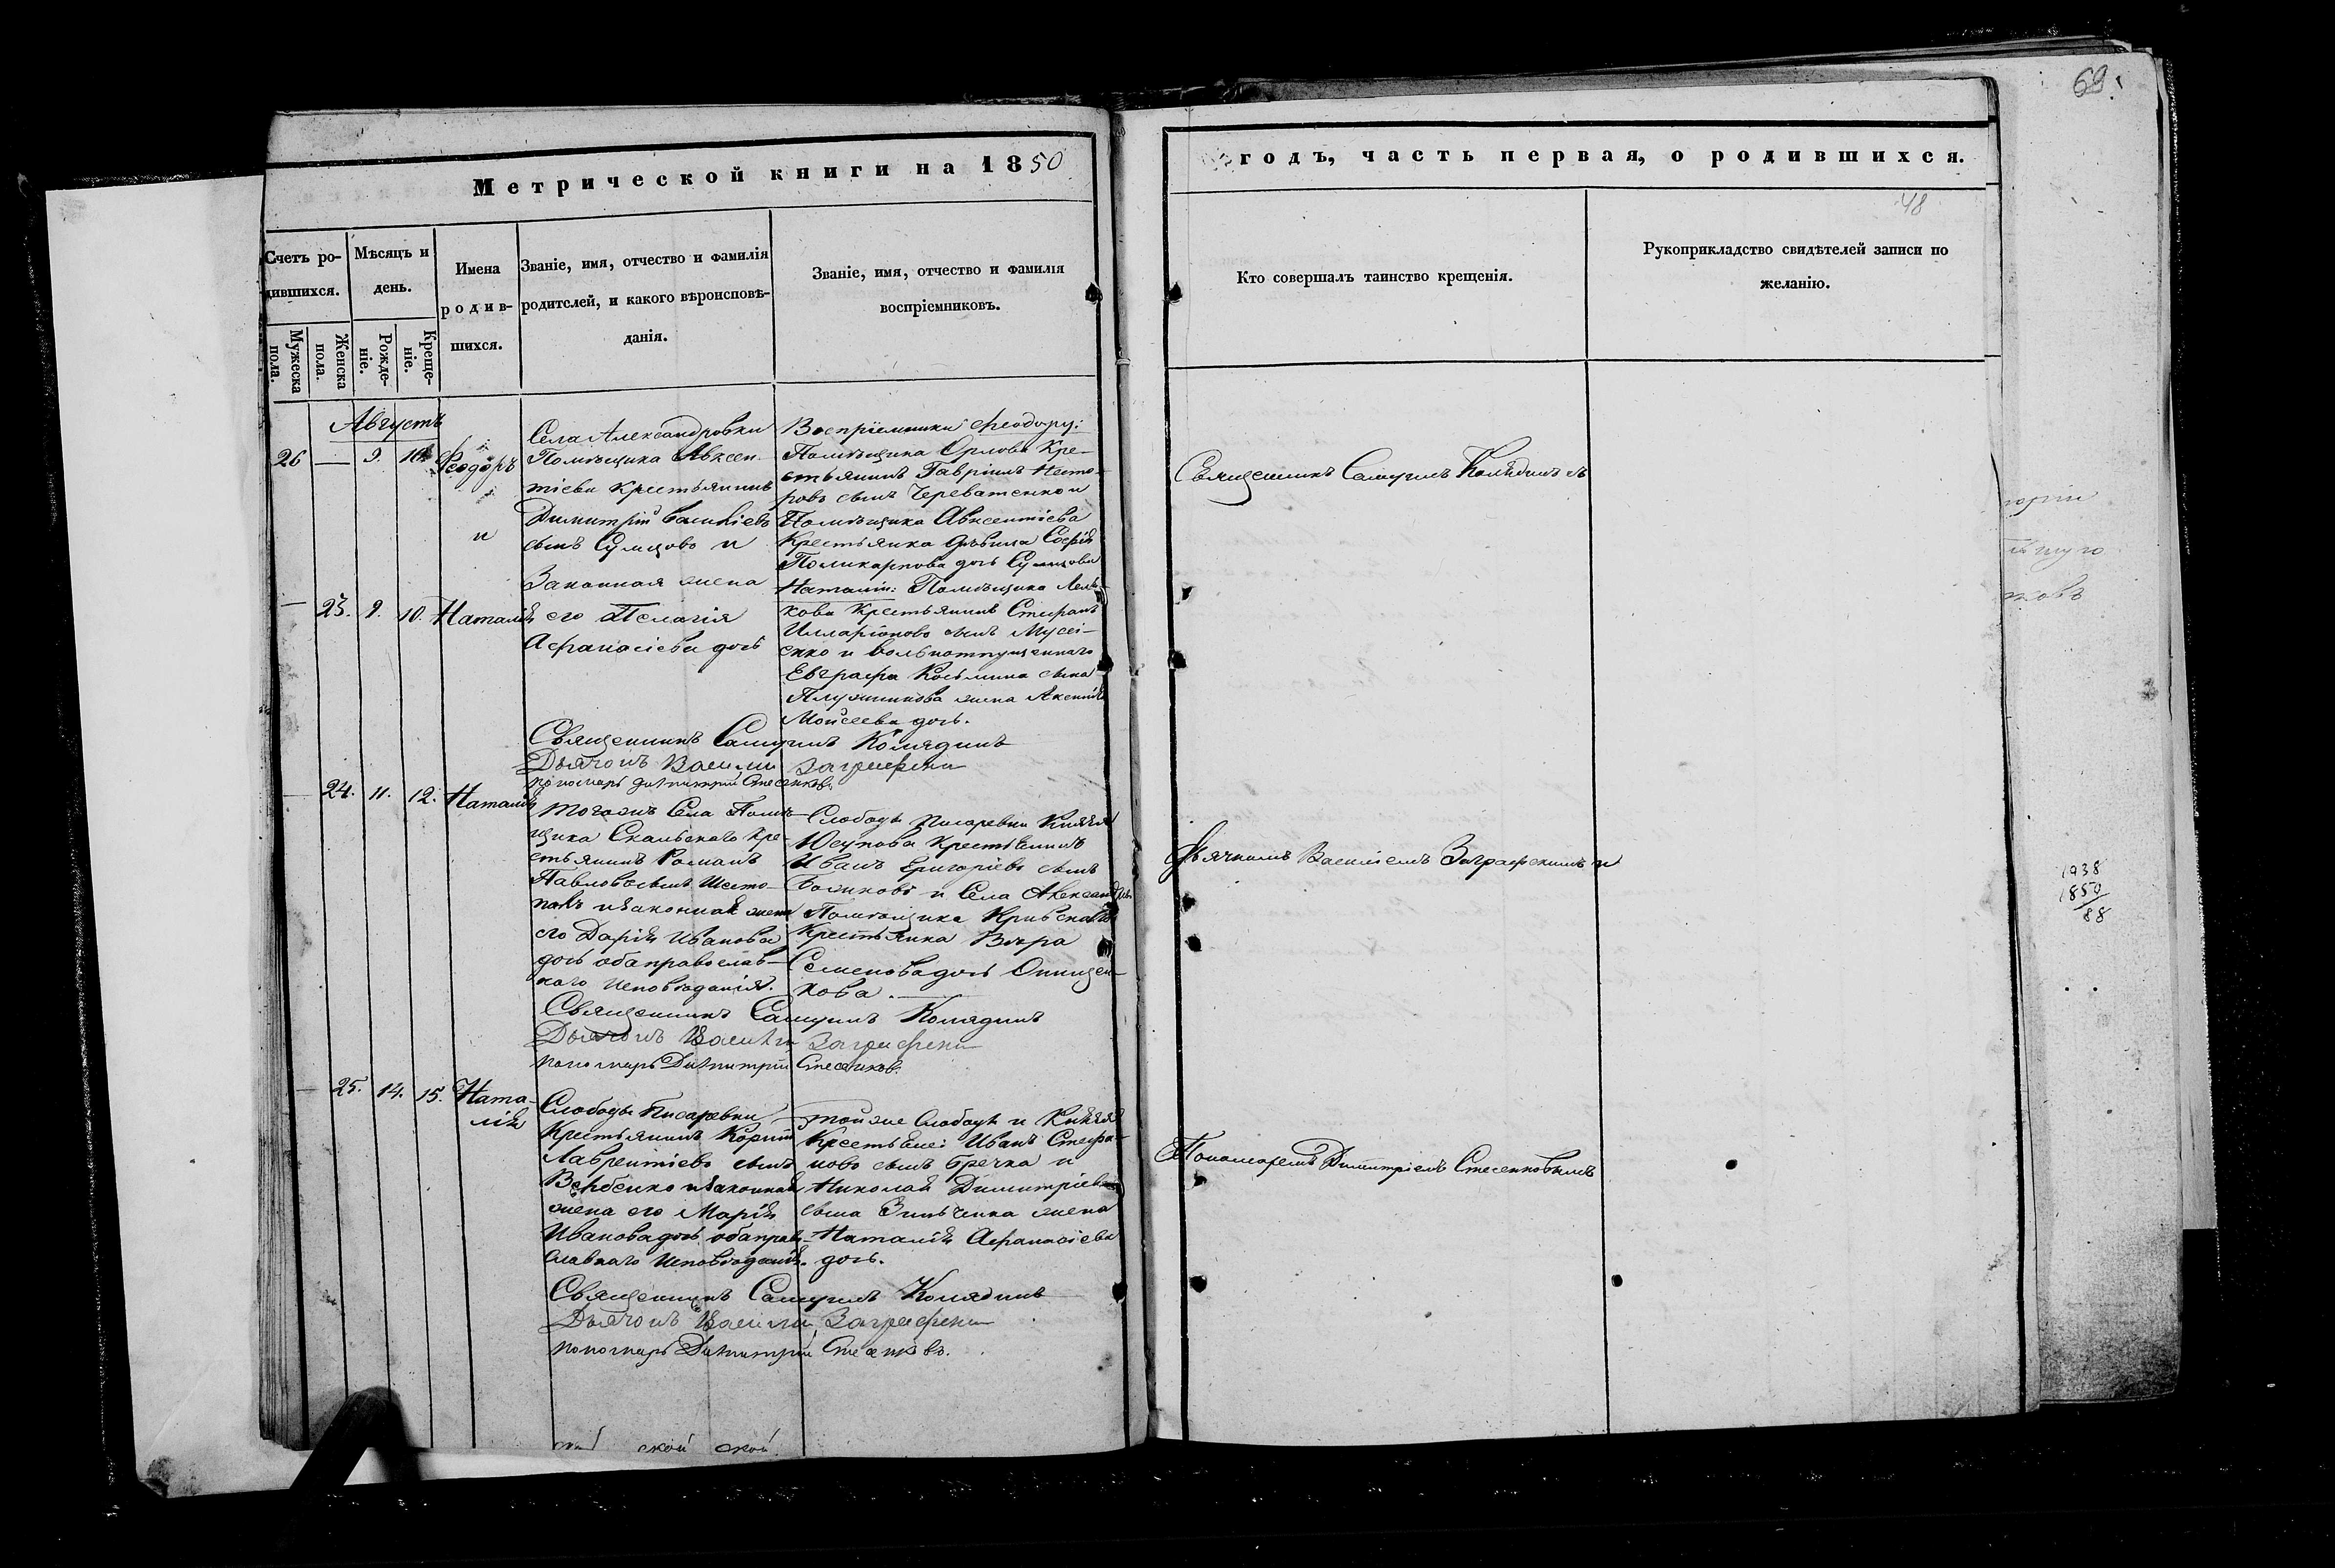 69.
Метрической книги на 1850
годъ, часть первая, о родившихся.
48
Счетъ ро-
дившихся.
Мужеска
пола.
Женска
пола.
Мѣсяцъ и
день.
Рожде-
ніе.
Креще-
ніе.
Имена
родив-
шихся.
Званіе, имя, отчество и фамилія
родителей, и какого вѣроисповѣ-
данія.
Званіе, имя, отчество и фамилія
воспріемниковъ.
Кто совершалъ таинство крещенія.
Рукоприкладство свидѣтелей записи по
желанію.
Августъ
26 — 9. 10. Феодоръ
и
— 23. 9. 10. Наталія
Села Александровки
Помѣщика Авксен
тіева крестьянинъ
Димитрій Василіевъ
сынъ Сумцовъ и
Законная жена
его Пелагія
Афанасіева дочь
Воспріемники Феодору:
Помѣщика Орлова Кре-
стьянинъ Гавріилъ Несто-
ровъ сынъ Череватенко и
Помѣщика Авксентіева
Крестьянка дѣвица Софія
Поликарпова дочь Сумцова
Наталіи: Помѣщика
кова Крестьянинъ Стефанъ
Илларіоновъ сынъ Мусі-
енко и вольноотпущеннаго
Евграфа Косьмина сына
Плужникова жена Аксинія
Моисеева дочь.
Священникъ Самуилъ Колядинъ
Дьячокъ Василій Заграфскій
пономарь Димитрій Стесенковъ.
Священникъ Самуилъ Колядинъ съ
— 24. 11. 12. Наталія
Тогожъ Села Помѣ-
щика Скальскаго Кре-
стьянинъ Романъ
Павловъ сынъ Шесто-
палъ и законная жена
его Дарія Иванова
дочь оба православ-
наго исповѣданія.
Слободы Писаревки Князя
Юсупова Крестьянинъ
Иванъ Григоріевъ сынъ
и Села Александров.
Помѣщика
Крестьянка Вѣра
Семенова дочь Онищен-
кова.
Священникъ Самуилъ Колядинъ
Дьячокъ Василій Заграфскій
пономарь Димитрій Стесенковъ.
Дьячкомъ Василіемъ Заграфскимъ и
— 25. 14. 15. Ната-
лія
Слободы Писаревки
Крестьянинъ Корній
Лаврентіевъ сынъ
Вербенко и законная
жена его Марія
Иванова дочь оба право-
славнаго исповѣданія.
той же Слободы и Князя
Крестьяне: Иванъ Стефа-
новъ сынъ Гречка и
Николая Димитріева
сына Зинченка жена
Наталія Афанасіева
дочь.
Священникъ Самуилъ Колядинъ
Дьячокъ Василій Заграфскій
пономарь Димитрій Стесенковъ.
Пономаремъ Димитріемъ Стесенковымъ
1938
1850
88